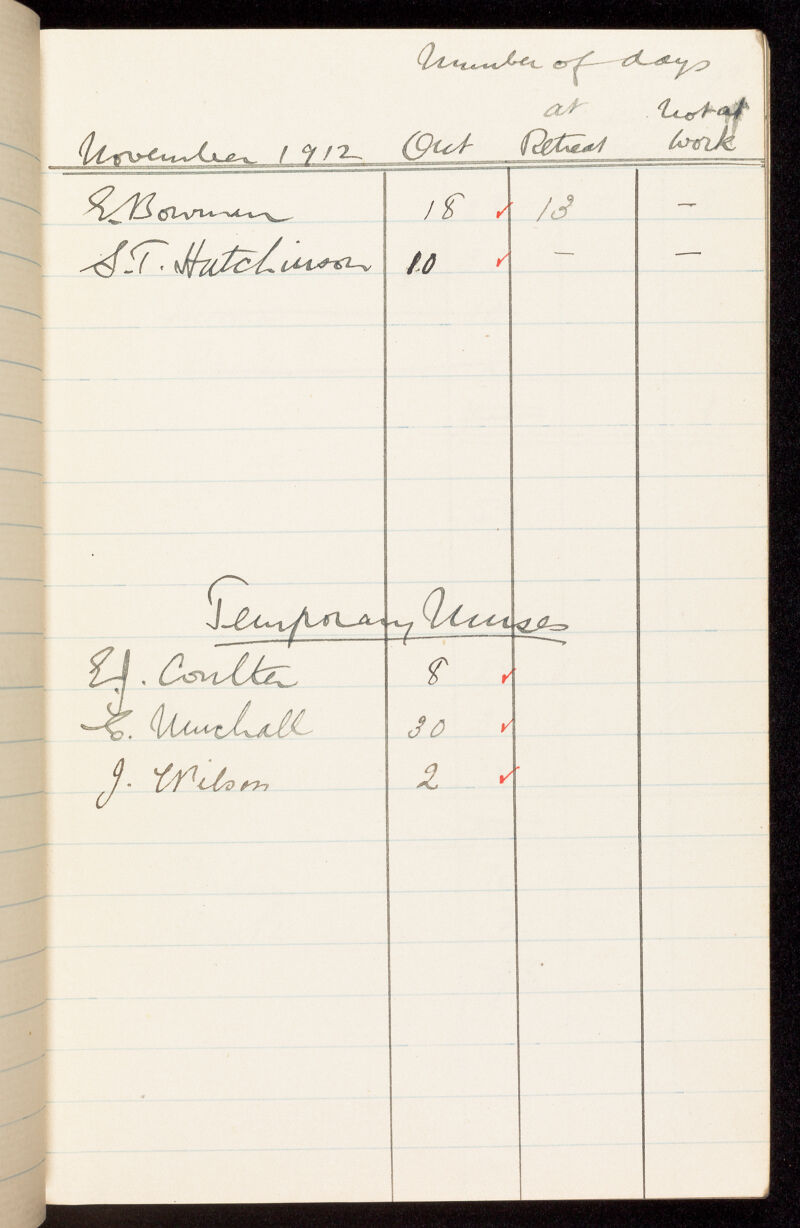 Number of days
at Not at
November 1912 Out Retreat Work
E. Bowman 18 ✓ 13 –
S. T. Hutchinson 10 ✓ – –
Temporary Nurses
E.J. Coulter 8 ✓
E. Murchall 30 ✓
J. Wilson 2 ✓